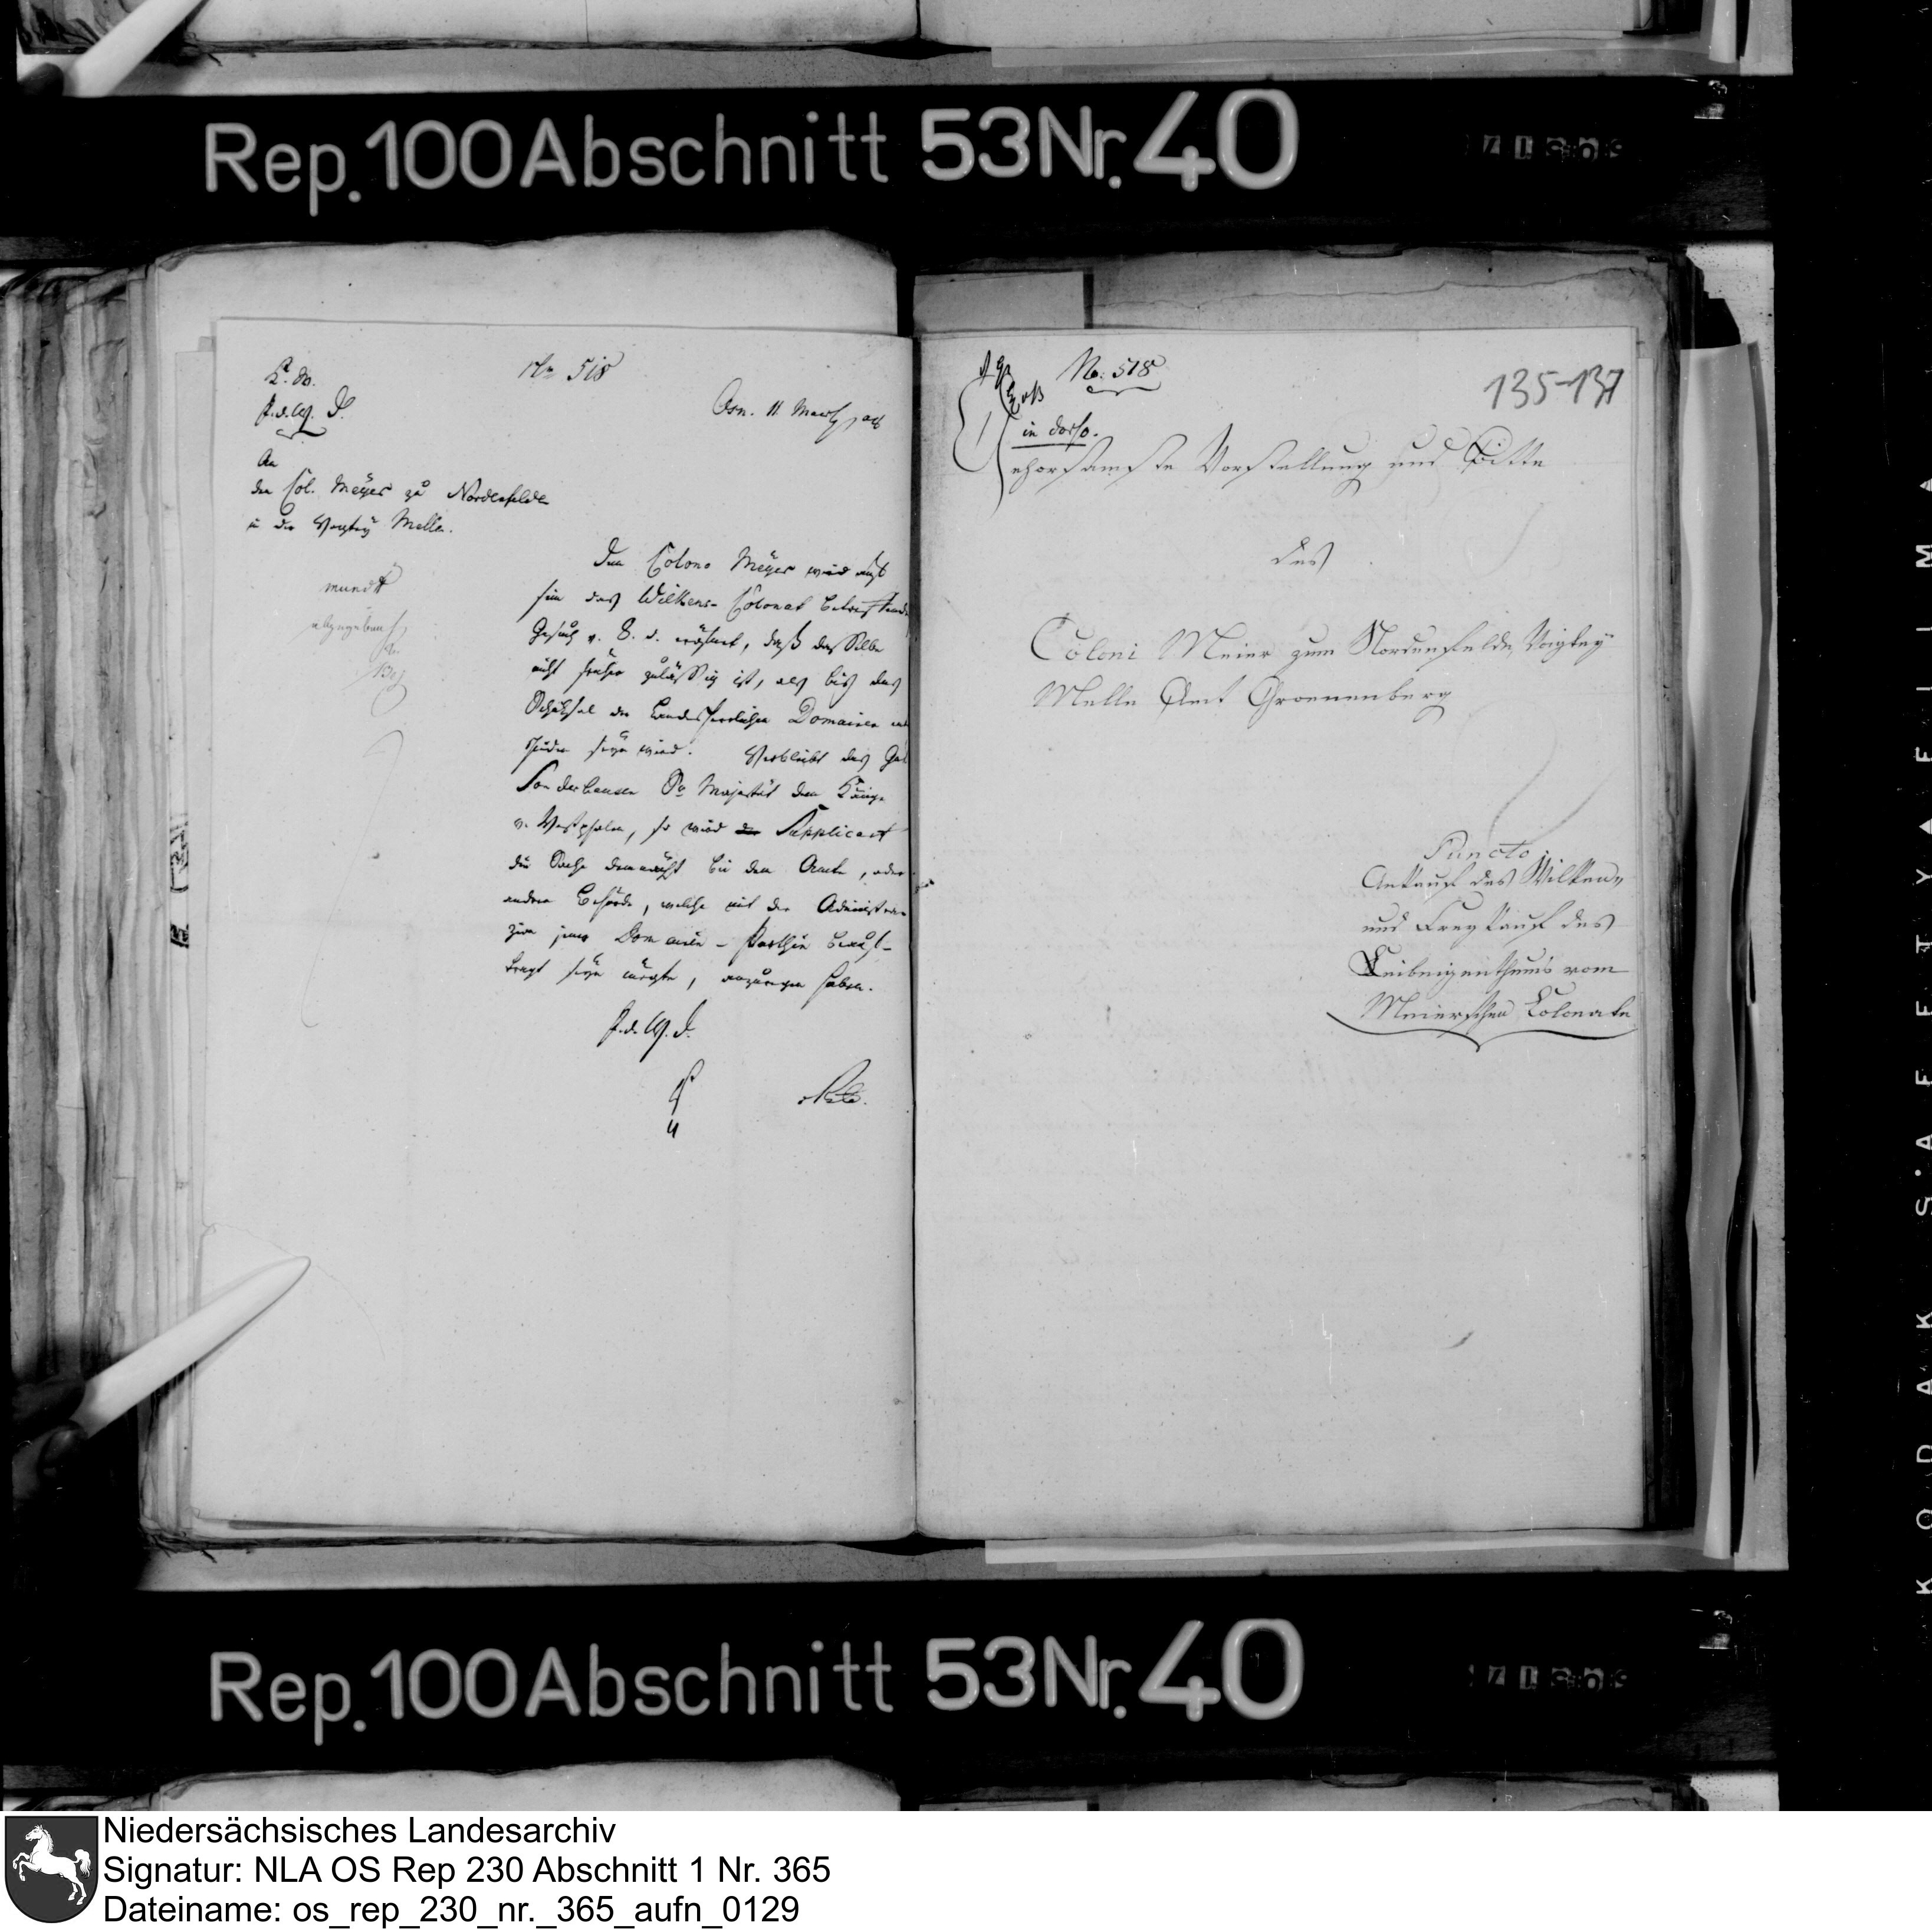 Rep. 100 Abschnitt 53 Nr. 40
No 518
P. d. W. D.
Osn. 11 Mart. 08
An
den Col. Meÿer zu Nordenfelde
in der Vogteÿ Melle.
mundt
abgegeben
Dem Colono Meÿer wird auf
sein das Wilkens-Colonat betreffende
Gesuch v. 8. d. eröfnet, daß dasselbe
nicht früher zuläßig ist, als bis das
Schicksal der Landesherrlichen Domainen ent
schieden seÿn wird. Verbleibt das Gut
Sondershausen Sr Majestät dem Könige
v. Westphalen, so wird Supplicant
die Sache demnächst bei dem Amte, oder
andern Behörde, welche mit der Administra-
zion jener Domainen-Parthie beauf-
tragt seÿn mögte, anzuregen haben.
P. d. W. D.
No. 518
135-137
in dorso.
gehorsamste Vorstellung und Bitte
des
Coloni Meier zum Nordenfelde, Voigtey
Melle Amt Groenenberg
Puncto
Ankauf des Wilkens
und Freykauf des
Leibeigenthums vom
Meierschen Colonate
Rep. 100 Abschnitt 53 Nr. 40
KODAK S'AFETY FILM
Niedersächsisches Landesarchiv
Signatur: NLA OS Rep 230 Abschnitt 1 Nr. 365
Dateiname: os_rep_230_nr._365_aufn_0129